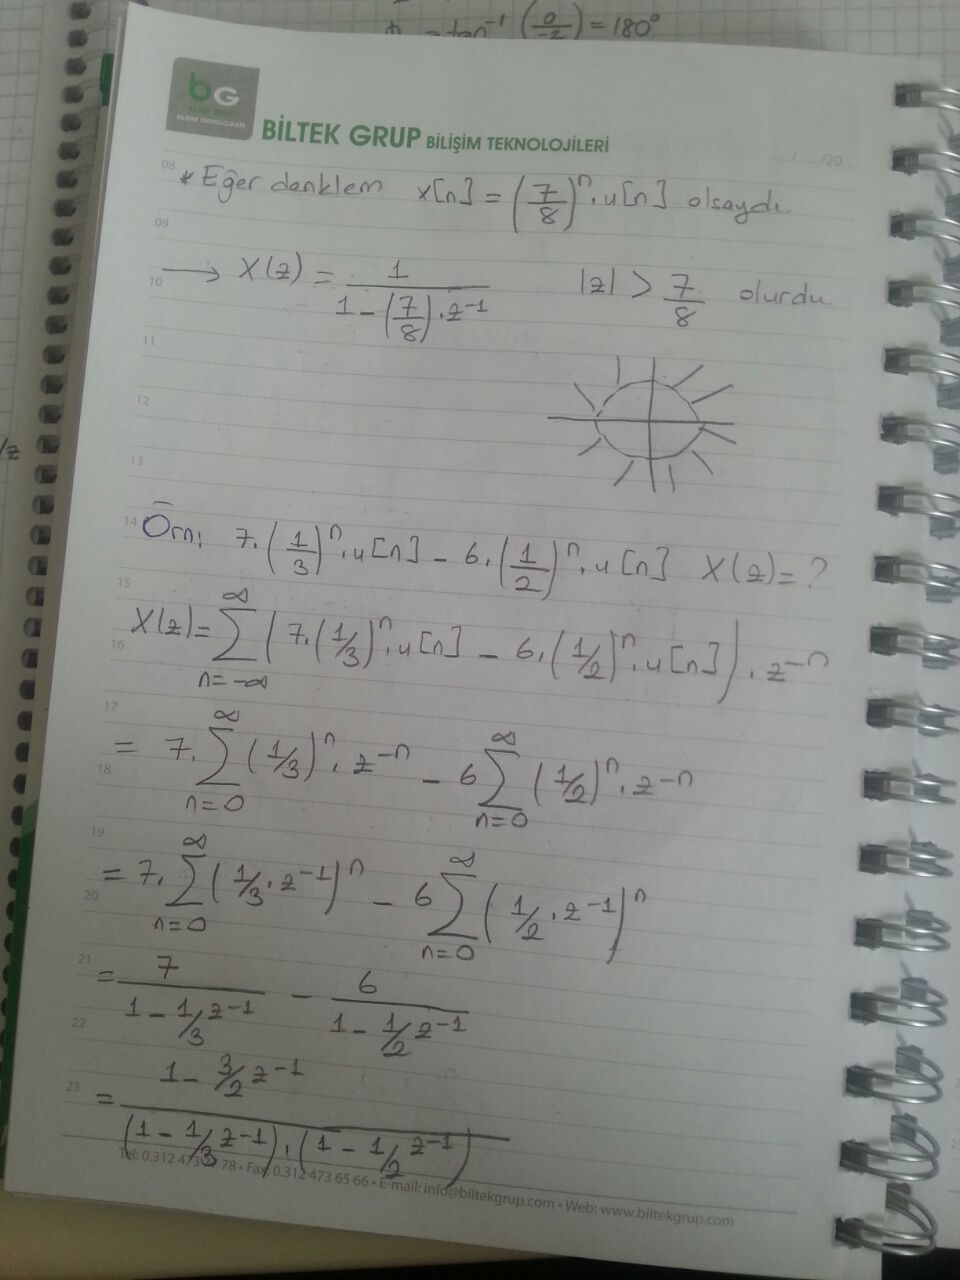 Φ = tan⁻¹ (0/-2) = 180°
bG
BİLİŞİM TEKNOLOJİLERİ
BİLTEK GRUP BİLİŞİM TEKNOLOJİLERİ
/ /20
08 * Eğer denklem x[n] = (7/8)ⁿ . u[n] olsaydı
09
10 → X(z) = 1 / (1 - (7/8) . z⁻¹) |z| > 7/8 olurdu
11
12
13
14 Örn: 7.(1/3)ⁿ.u[n] - 6.(1/2)ⁿ.u[n] X(z) = ?
15
16 X(z) = ∑ n=-∞ ∞ (7.(1/3)ⁿ.u[n] - 6.(1/2)ⁿ.u[n]) . z⁻ⁿ
17
18 = 7. ∑ n=0 ∞ (1/3)ⁿ . z⁻ⁿ - 6 ∑ n=0 ∞ (1/2)ⁿ . z⁻ⁿ
19
20 = 7. ∑ n=0 ∞ (1/3 . z⁻¹)ⁿ - 6 ∑ n=0 ∞ (1/2 . z⁻¹)ⁿ
21 = 7 / (1 - 1/3 z⁻¹) - 6 / (1 - 1/2 z⁻¹)
22
23 = (1 - 3/2 z⁻¹) / ((1 - 1/3 z⁻¹) . (1 - 1/2 z⁻¹))
78 • Fax: 0.312 473 65 66 • E-mail: info@biltekgrup.com • Web: www.biltekgrup.com
/z